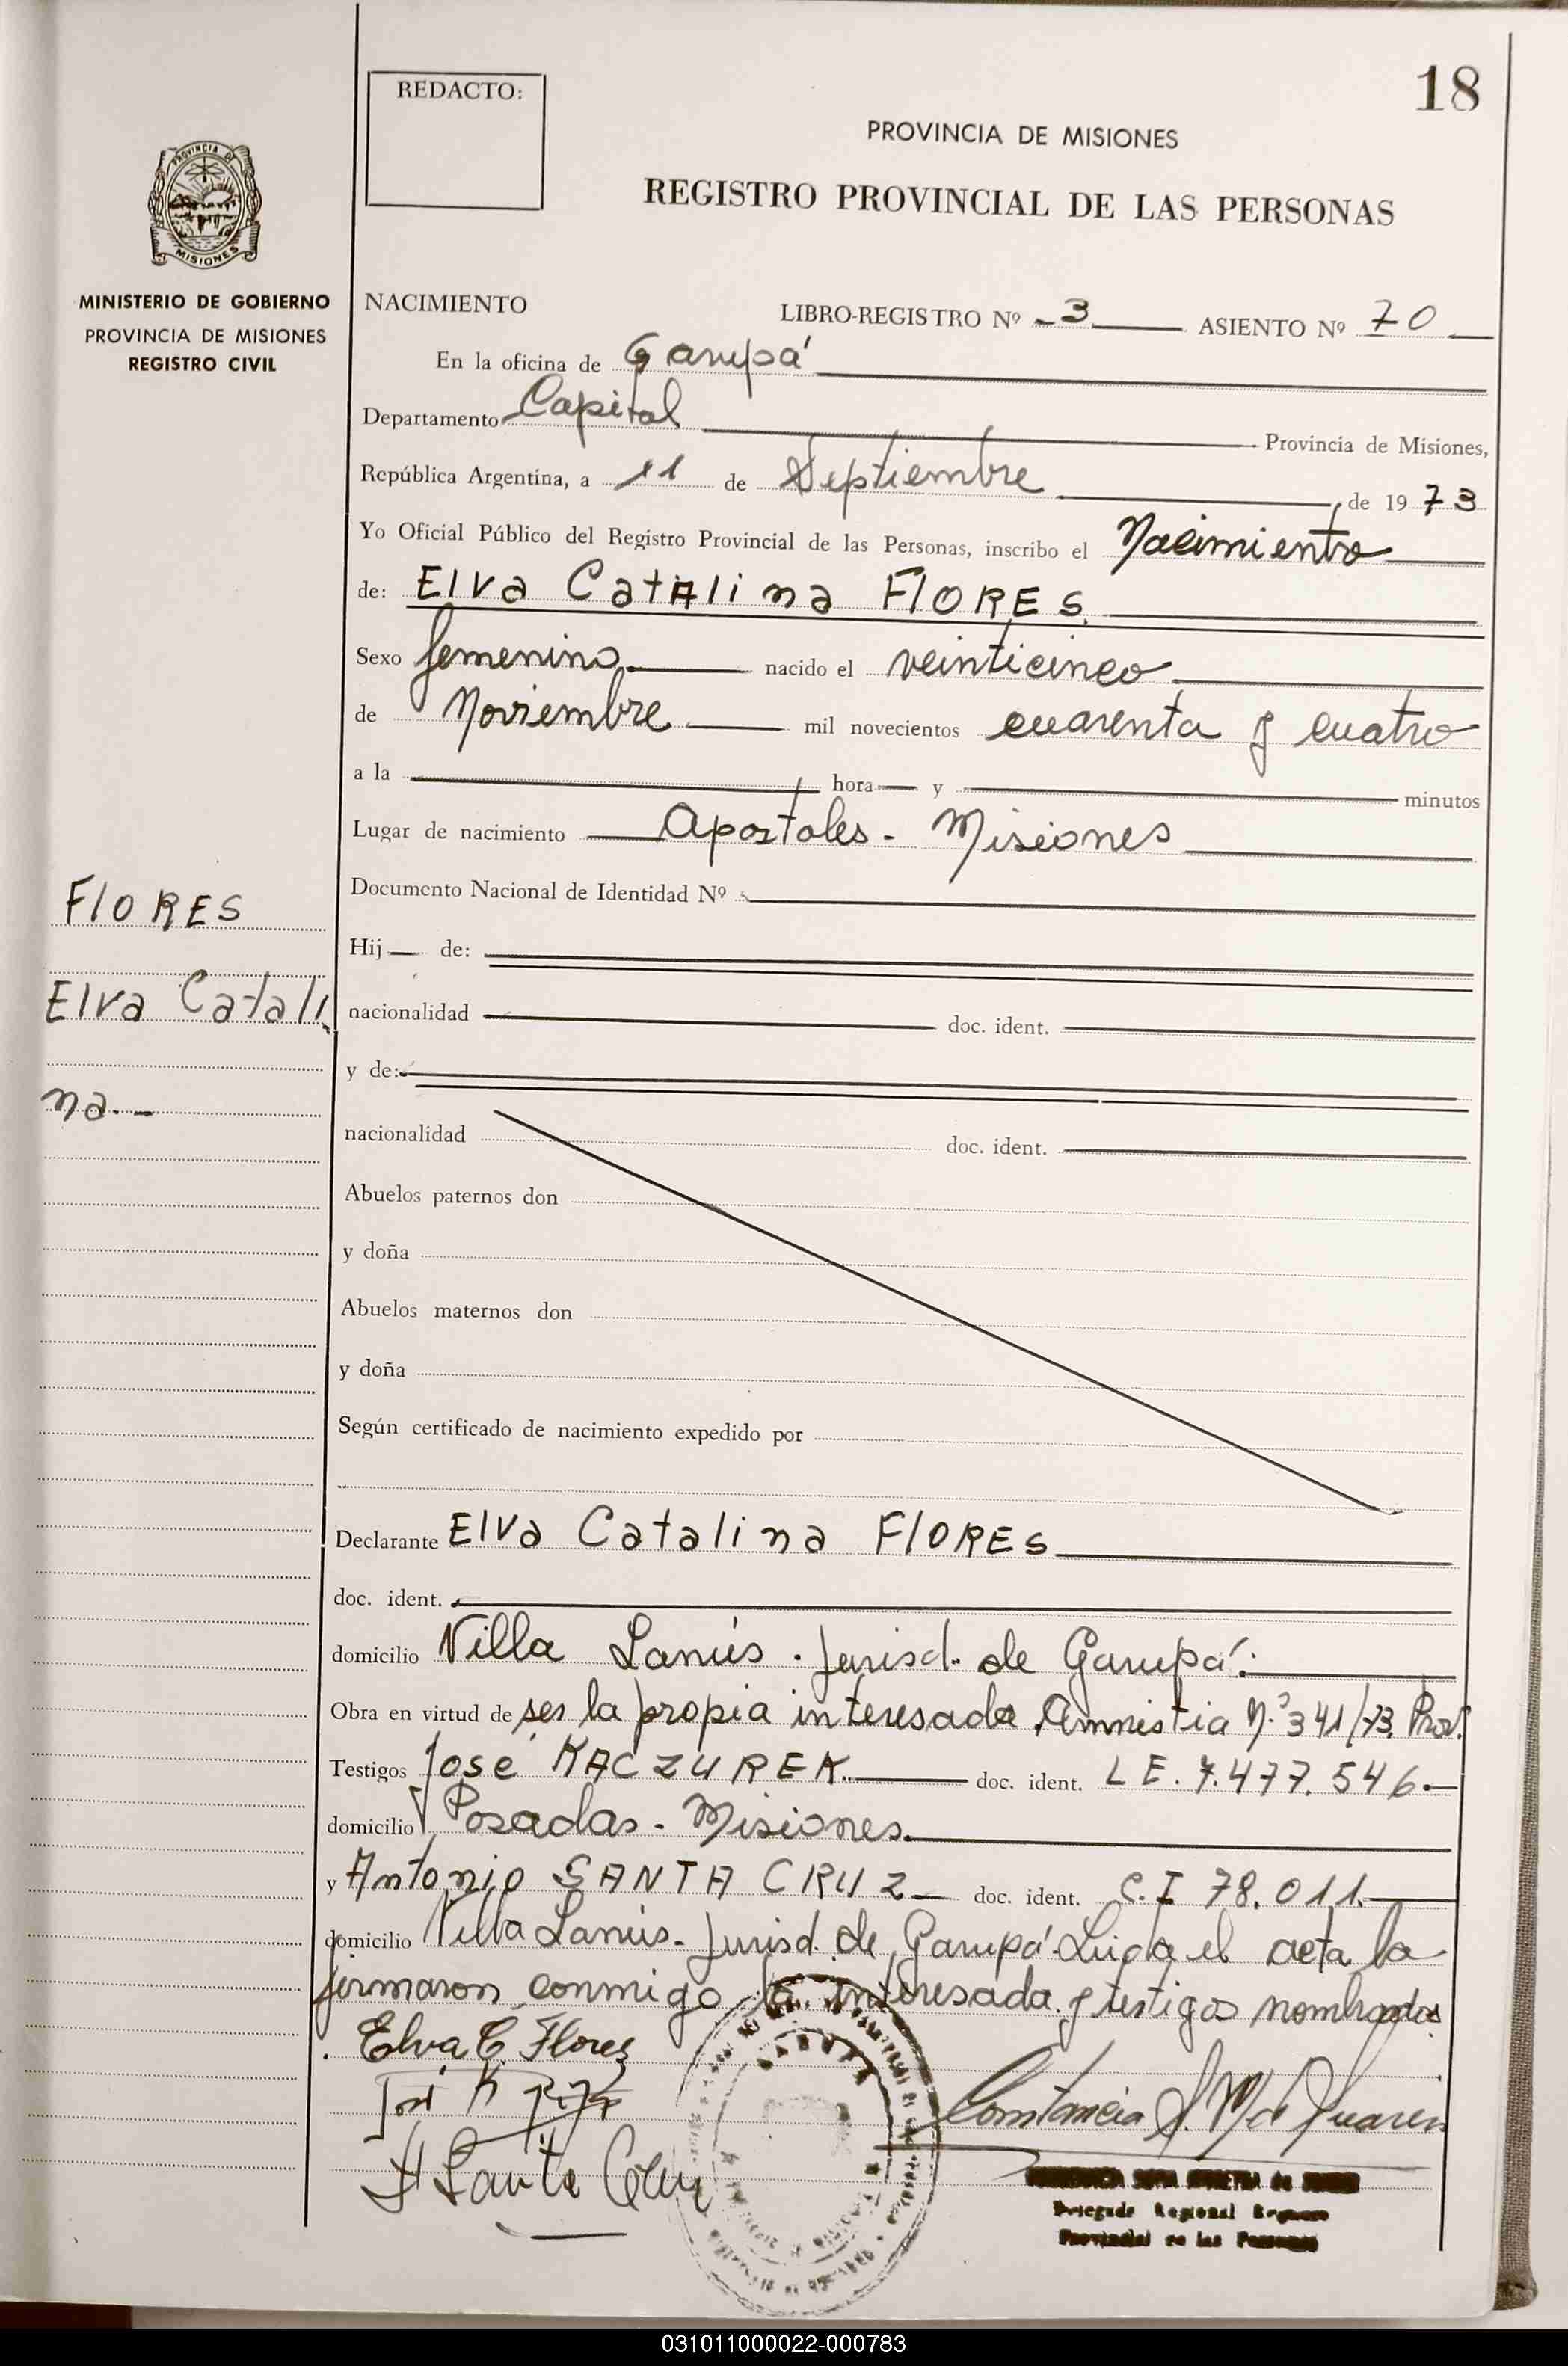 18
REDACTO:
PROVINCIA DE MISIONES
REGISTRO PROVINCIAL DE LAS PERSONAS
PROVINCIA DE
MISIONES
MINISTERIO DE GOBIERNO
PROVINCIA DE MISIONES
REGISTRO CIVIL
NACIMIENTO LIBRO-REGISTRO Nº 3 ASIENTO Nº 70
En la oficina de Garupá
Departamento Capital Provincia de Misiones,
República Argentina, a 11 de Septiembre, de 1973
Yo Oficial Público del Registro Provincial de las Personas, inscribo el Nacimiento
de: Elva Catalina FlORES
Sexo femenino. nacido el veinticinco
de Noviembre mil novecientos cuarenta y cuatro
a la hora y minutos
Lugar de nacimiento Apostoles - Misiones
Documento Nacional de Identidad Nº
Hij de:
nacionalidad doc. ident.
y de:
nacionalidad doc. ident.
Abuelos paternos don
y doña
Abuelos maternos don
y doña
Según certificado de nacimiento expedido por
FlORES
Elva Catali
na.-
Declarante Elva Catalina FlORES
doc. ident.
domicilio Villa Lanús. Jurisd. de Garupá.
Obra en virtud de ser la propia interesada Amnistia N.º 341/73. Prov.
Testigos José KACZUREK. doc. ident. L E. 7.477.546.-
domicilio Posadas - Misiones.
y Antonio SANTA CRUZ doc. ident. C.I 78.011.
domicilio Villa Lanús - Jurisd. de Garupá. Leida el acta la
firmaron conmigo la interesada y testigos nombrados.
Elva C. Flores
Constancia S. M. de Juarez
A Santa Cruz
Delegada Regional Registro
Provincial de las Personas
031011000022-000783